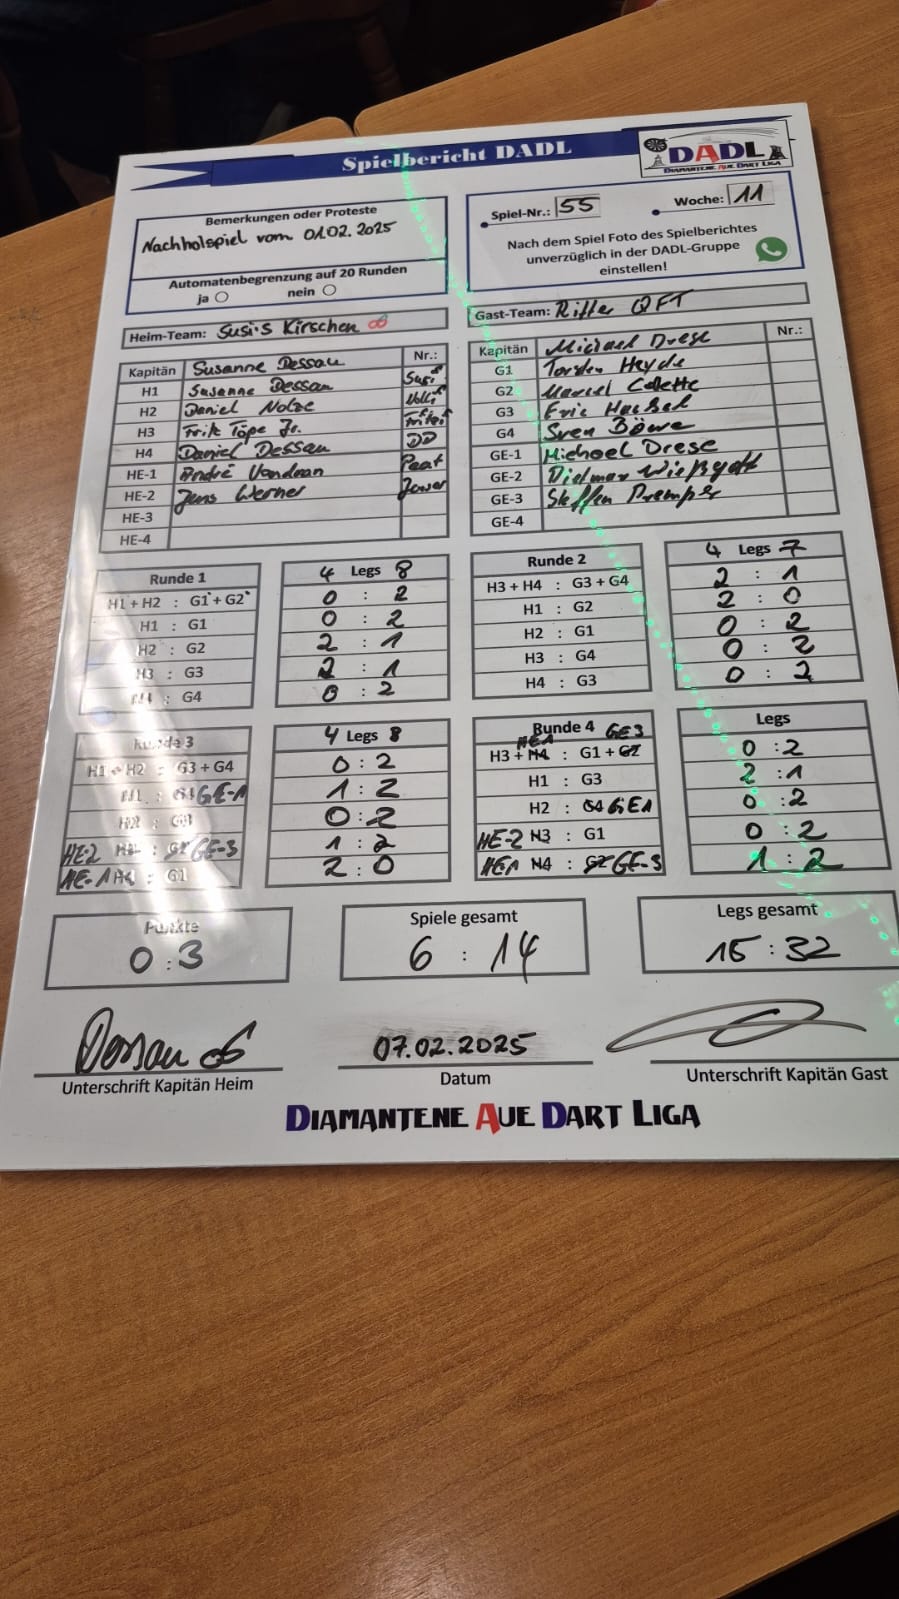 Spielbericht DADL
DADL
DIAMANTENE AUE DART LIGA
Bemerkungen oder Proteste
Nachholspiel vom 01.02.2025
Automatenbegrenzung auf 20 Runden
ja nein
Spiel-Nr.: 55 Woche: 11
Nach dem Spiel Foto des Spielberichtes
unverzüglich in der DADL-Gruppe
einstellen!
Heim-Team: Susi's Kirschen
Kapitän Susanne Dessau Nr.:
H1 Susanne Dessau Susi
H2 Daniel Nolze
H3 Frik Töpe Jr.
H4 Daniel Dessau DD
HE-1 André Vondran
HE-2 Jens Werner Jower
HE-3
HE-4
Gast-Team: Ritter QFT
Kapitän Michael Drese Nr.:
G1 Torsten Heyde
G2 Marcel Colette
G3 Eric
G4 Sven Böwe
GE-1 Michael Drese
GE-2 Dietmar
GE-3 Steffen
GE-4
Runde 1 4 Legs 8
H1 + H2 : G1 + G2 0 : 2
H1 : G1 0 : 2
H2 : G2 2 : 1
H3 : G3 2 : 1
H4 : G4 0 : 2
Runde 2 4 Legs 7
H3 + H4 : G3 + G4 2 : 1
H1 : G2 2 : 0
H2 : G1 0 : 2
H3 : G4 0 : 2
H4 : G3 0 : 2
Runde 3 4 Legs 8
H1 + H2 : G3 + G4 0 : 2
H1 : G4 GE-1 1 : 2
H2 : G3 0 : 2
HE-2 H3 : G2 GE-3 1 : 2
HE-1 H4 : G1 2 : 0
Runde 4 GE3 Legs
HE1
H3 + H4 : G1 + G2 0 : 2
H1 : G3 2 : 1
H2 : G4 GE1 0 : 2
HE-2 H3 : G1 0 : 2
HE1 H4 : G2 GE-3 1 : 2
Punkte
0 : 3
Spiele gesamt
6 : 14
Legs gesamt
15 : 32
Dessau
07.02.2025
Unterschrift Kapitän Heim
Datum
Unterschrift Kapitän Gast
DIAMANTENE AUE DART LIGA